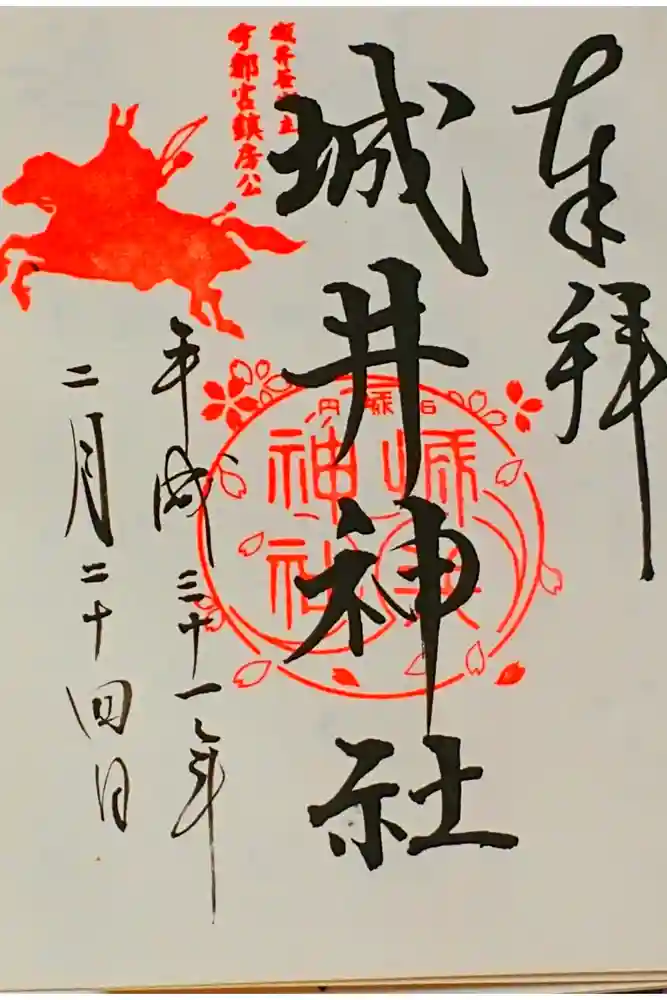 奉拝
城井神社
宇都宮鎮房公
城井
神社
平成三十一年
二月二十四日